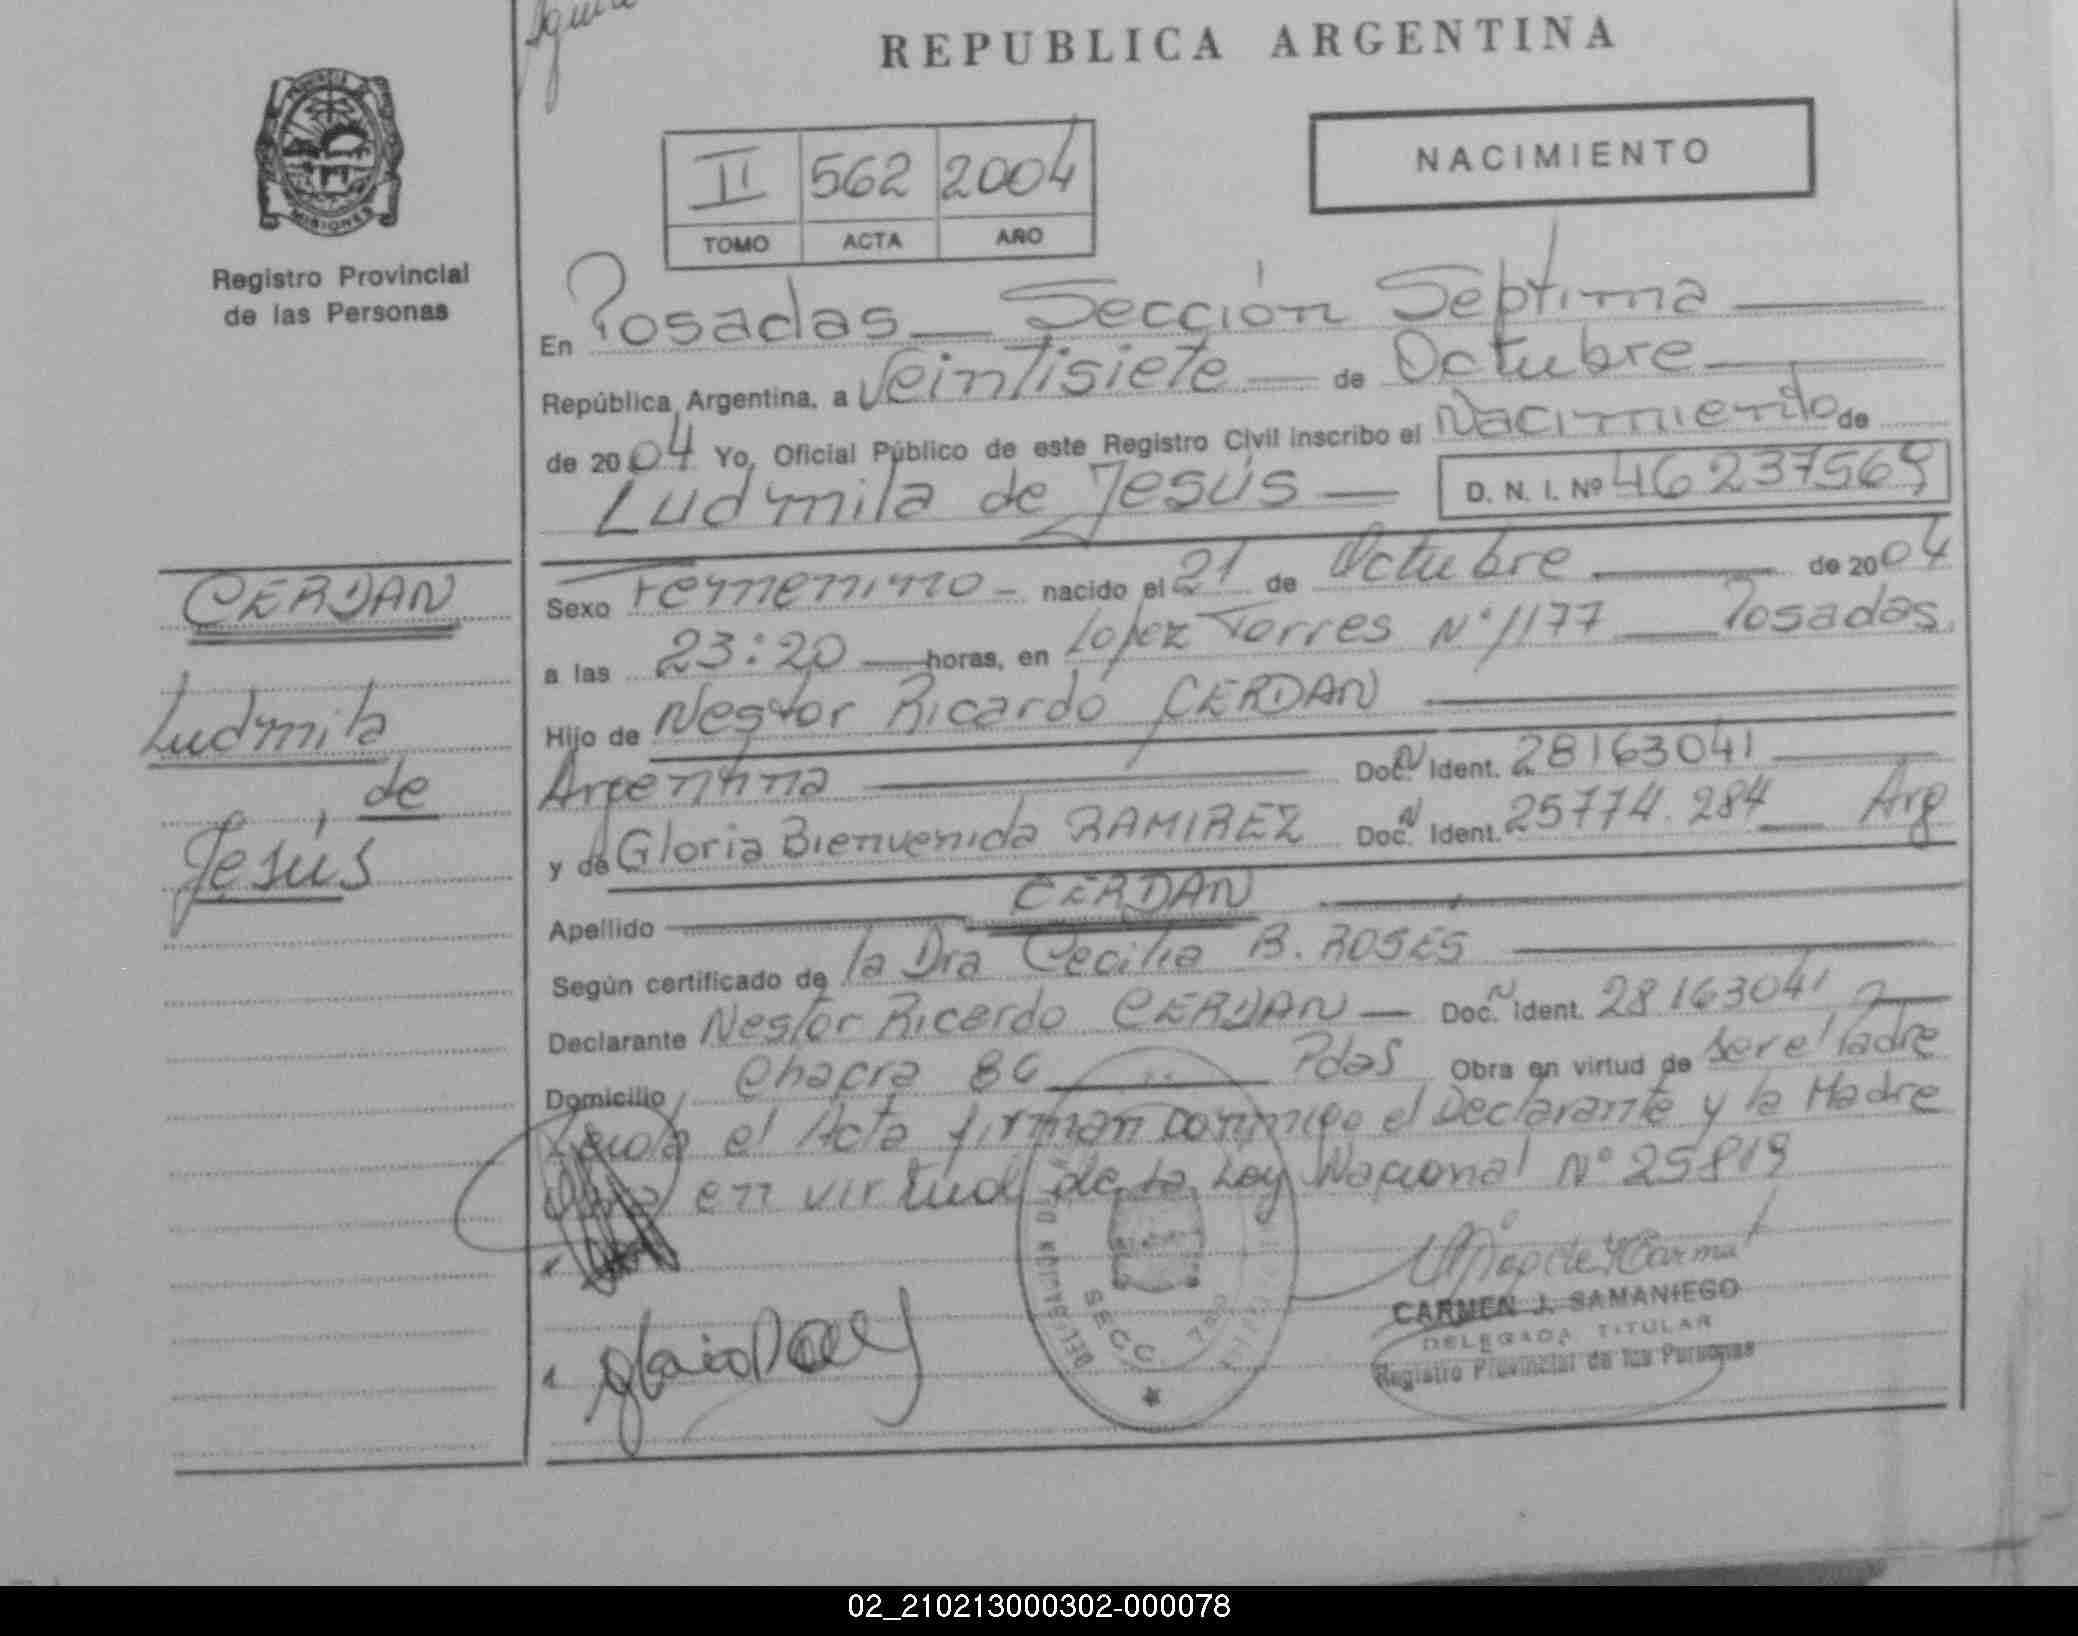 REPUBLICA ARGENTINA
PROVINCIA DE
MISIONES
Registro Provincial
de las Personas
II 562 2004
TOMO ACTA AÑO
NACIMIENTO
En Posadas — Sección Septima —
República Argentina, a Veintisiete — de Octubre —
de 2004 Yo, Oficial Público de este Registro Civil inscribo el Nacimiento de
Ludmila de Jesús — D. N. I. Nº 46237569
CERDAN
Ludmila
de
Jesús
Sexo Femenino - nacido el 21 de Octubre — de 2004
a las 23:20 — horas, en Lopez Torres Nº 1177 — Posadas
Hijo de Nestor Ricardo CERDAN —
Argentina — Doc. N Ident. 28163041 —
y de Gloria Bienvenida RAMIREZ Doc. N Ident. 25774.284 — Arg
Apellido — CERDAN —
Según certificado de la Dra Cecilia B. ROSÉS —
Declarante Nestor Ricardo CERDAN — Doc. N Ident. 28163041 —
Domicilio Chacra 86 — Pdas Obra en virtud de ser el Padre
Leida el Acta firman conmigo el Declarante y la Madre
en virtud de la Ley Nacional Nº 25819
SECC. 7
CARMEN J. SAMANIEGO
DELEGADA TITULAR
Registro Provincial de las Personas
02_210213000302-000078